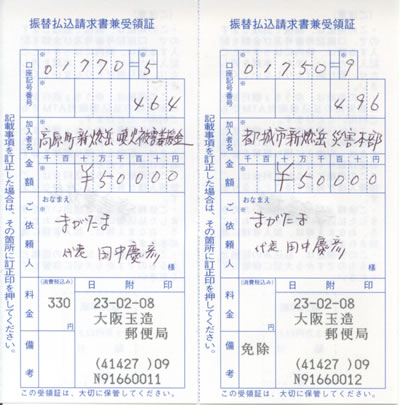 振替払込請求書兼受領証
口座記号番号
01770=5
464
加入者名
高原町新燃岳噴火被害義援金
金額
千 百 十 万 千 百 十 円
¥50000
ご依頼人
おなまえ
まがたま
代表 田中慶彦
様
料金
(消費税込み)
330
円
日附印
23-02-08
大阪玉造
郵便局
備考
(41427)09
N91660011
この受領証は、大切に保管してください。
記載事項を訂正した場合は、その箇所に訂正印を押してください。
振替払込請求書兼受領証
口座記号番号
01750=9
496
加入者名
都城市新燃岳災害本部
金額
千 百 十 万 千 百 十 円
¥50000
ご依頼人
おなまえ
まがたま
代表 田中慶彦
様
料金
(消費税込み)
円
日附印
23-02-08
大阪玉造
郵便局
備考
免除
(41427)09
N91660012
この受領証は、大切に保管してください。
記載事項を訂正した場合は、その箇所に訂正印を押してください。